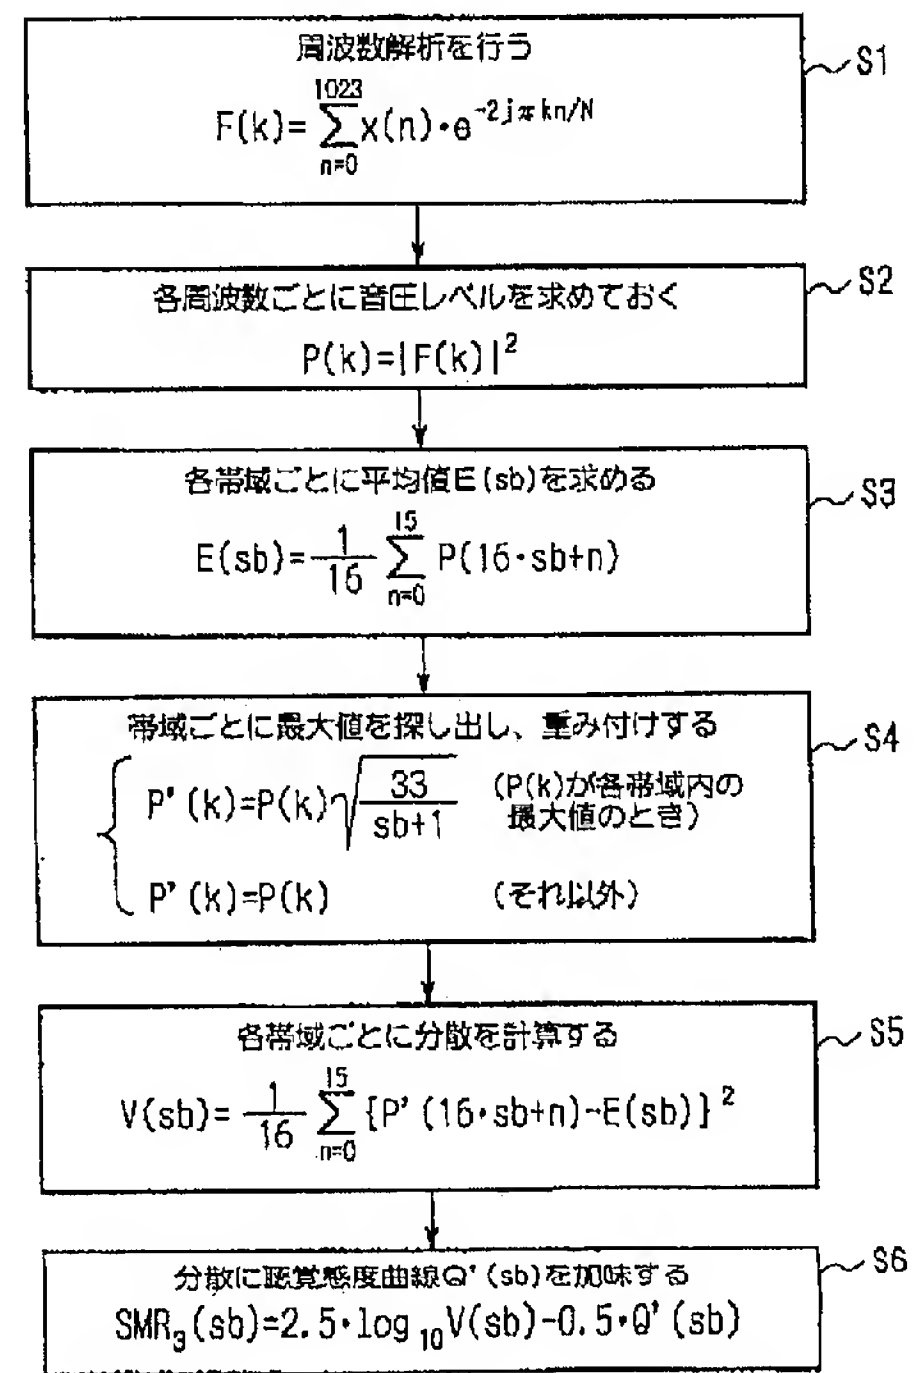 周波数解析を行う
F(k)=∑_{n=0}^{1023}x(n)・e^{-2jπkn/N}
S1
各周波数ごとに音圧レベルを求めておく
P(k)=|F(k)|²
S2
各帯域ごとに平均値E(sb)を求める
E(sb)=1/16 ∑_{n=0}^{15} P(16・sb+n)
S3
帯域ごとに最大値を探し出し、重み付けする
P'(k)=P(k)√(33/(sb+1)) (P(k)が各帯域内の
最大値のとき)
P'(k)=P(k) (それ以外)
S4
各帯域ごとに分散を計算する
V(sb)=1/16 ∑_{n=0}^{15} {P'(16・sb+n)-E(sb)}²
S5
分散に聴覚感度曲線Q'(sb)を加味する
SMR₃(sb)=2.5・log₁₀V(sb)-0.5・Q'(sb)
S6